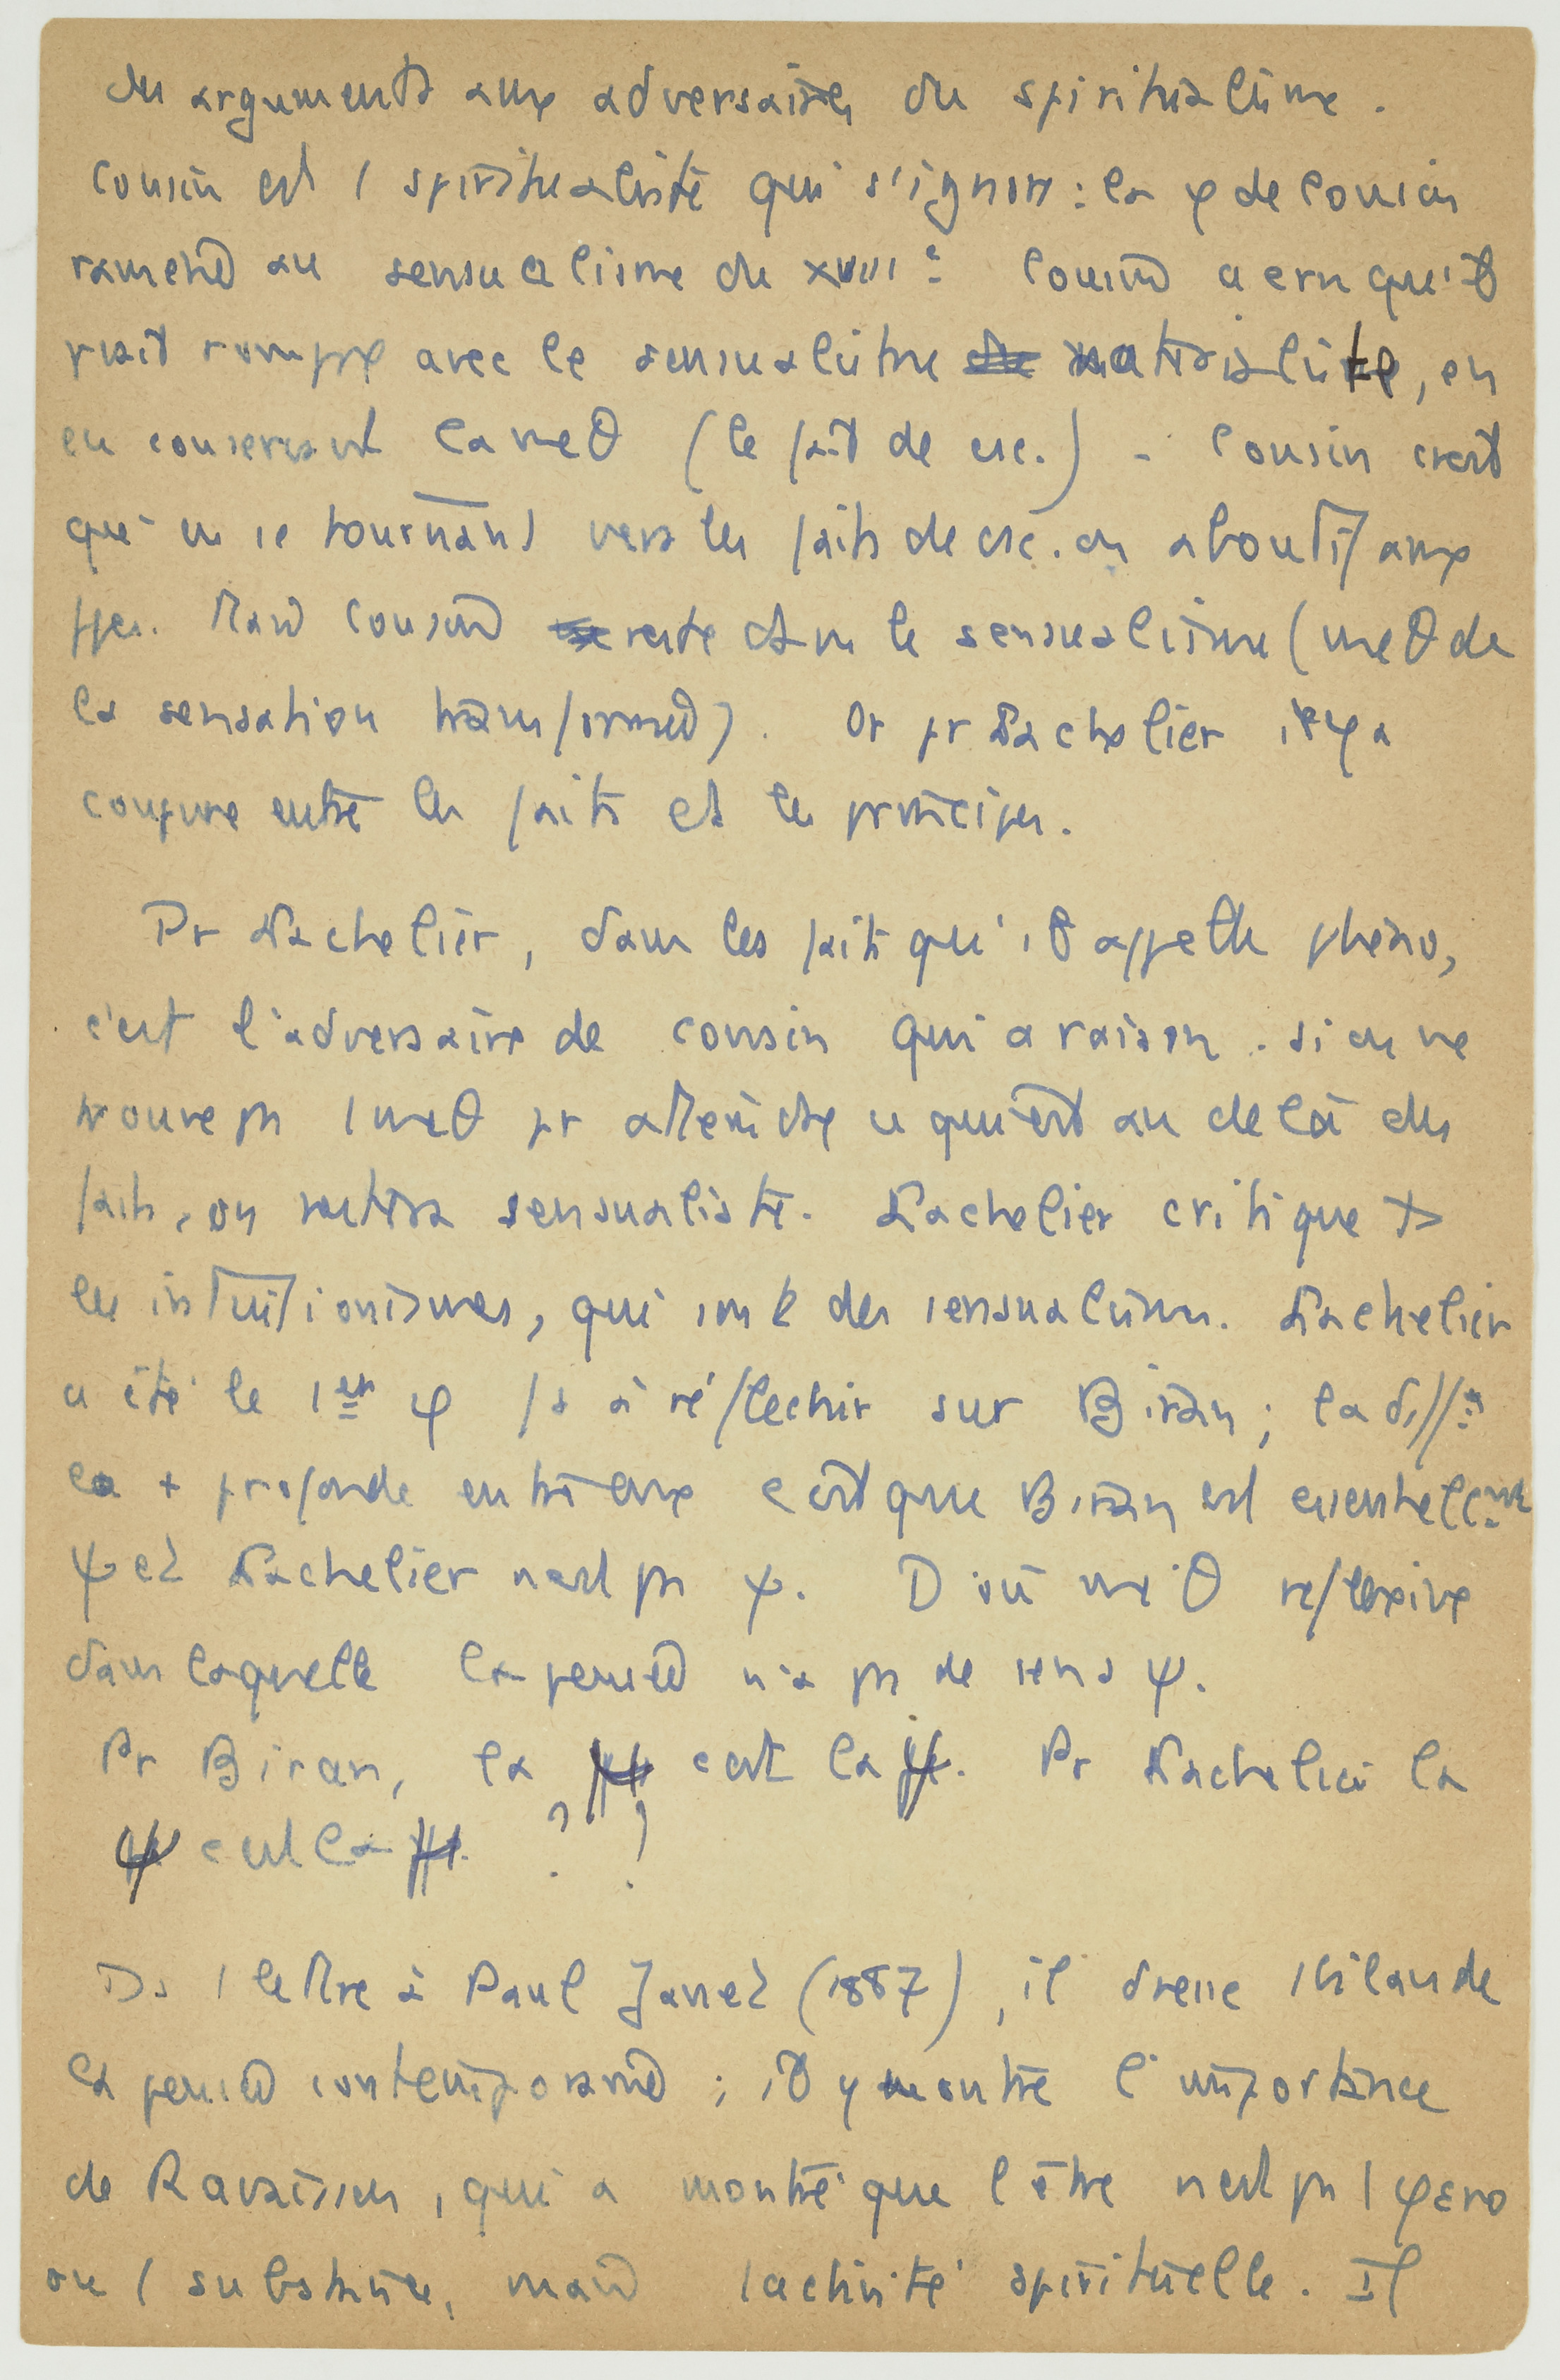 des arguments aux adversaires du spiritualisme.
Cousin est 1 spiritualiste qui s'ignore : la φ de Cousin
ramène au sensualisme du XVIIIe. Cousin a cru qu'il
rompre avec le sensualisme matérialiste, en
en conservant la meθ (le fait de csc.). Cousin croit
qu'en se tournant vers les faits de csc. on aboutit aux
ppes. Mais Cousin reste ds le sensualisme (meθ de
la sensation transformée). Or pr Lachelier il y a
coupure entre les faits et les principes.
Pr Lachelier, dans les faits qu'il appelle phéno,
c'est l'adversaire de Cousin qui a raison. Si on ne
trouve pas 1 meθ pr atteindre ce qui est au delà des
faits, on restera sensualiste. Lachelier critique ts
les intuitionismes, qui sont des sensualismes. Lachelier
a été le 1er φ fs à réfléchir sur Biran ; la diffce
la + profonde entre eux c'est que Biran est essentiellemt
ψ et Lachelier n'est pas ψ. D'où méθ réflexive
dans laquelle la pensée n'a pas de sens ψ.
Pr Biran, la c'est la ψ. Pr Lachelier la
ψ c'est la ? ?
Ds 1 lettre à Paul Janet (1887), il dresse 1 bilan de
la pensée contemporaine ; il y montre l'importance
de Ravaisson, qui a montré que l'être n'est pas 1 φeno
ou 1 substance, mais l'activité spirituelle. Il